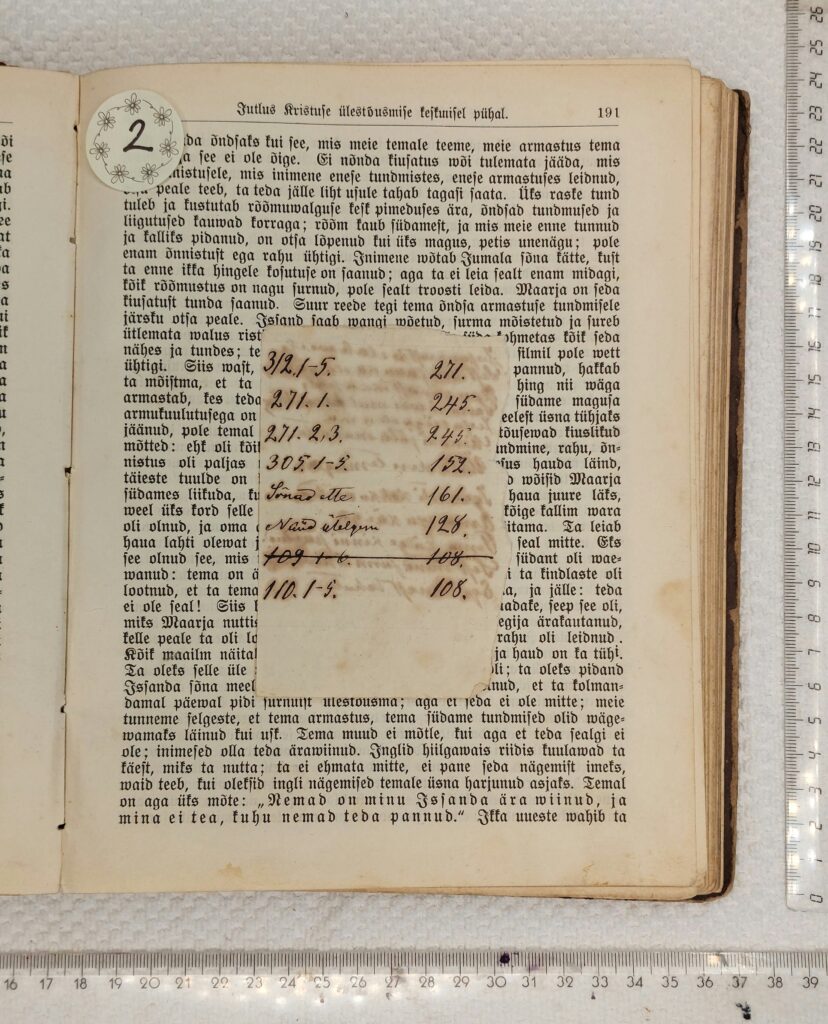 Jutlus Kristuse ülestõusmise keskmisel pühal. 191
2
da õndsaks kui see, mis meie temale teeme, meie armastus tema
a see ei ole õige. Ei nõnda kiusatus wõi tulemata jääda, mis
mistusele, mis inimene enese tundmistes, enese armastuses leidnud,
peale teeb, ta teda jälle liht usule tahab tagasi saata. Üks raske tund
tuleb ja kustutab rõõmuwalguse kesk pimeduses ära, õndsad tundmused ja
liigutused kauwad korraga; rõõm kaub südamest, ja mis meie enne tunnud
ja kalliks pidanud, on otsa lõpenud kui üks magus, petis unenägu; pole
enam õnnistust ega rahu ühtigi. Inimene wõtab Jumala sõna kätte, kust
ta enne ikka hingele kosutuse on saanud; aga ta ei leia sealt enam midagi,
kõik rõõmustus on nagu surnud, pole sealt troosti leida. Maarja on seda
kiusatust tunda saanud. Suur reede tegi tema õndsa armastuse tundmisele
järsku otsa peale. Issand saab wangi wõetud, surma mõistetud ja sureb
ütlemata walus rist kohmetas kõik seda
nähes ja tundes; te silmil pole wett
ühtigi. Siis wast, pannud, hakkab
ta mõistma, et ta hing nii wäga
armastab, kes teda südame magusa
armukuulutusega on eelest üsna tühjaks
jäänud, pole temal tõusewad kiuslikud
mõtted: ehk oli kõik undmine, rahu, õn-
nistus oli paljas sus hauda läind,
täieste tuulde on d wõisid Maarja
südames liikuda, ku haua juure läks,
weel üks kord selle kõige kallim wara
oli olnud, ja oma itama. Ta leiab
haua lahti olewat j seal mitte. Eks
see olnud see, mis südant oli wae-
wanud: tema on ä i ta kindlaste oli
lootnud, et ta tema a, ja jälle: teda
ei ole seal! Siis l adake, seep see oli,
miks Maarja nuttis egija ärakautanud,
kelle peale ta oli lo rahu oli leidnud.
Kõik maailm näital ja haud on ka tühi.
Ta oleks selle üle oli; ta oleks pidand
Issanda sõna meel nud, et ta kolman-
damal päewal pidi surnuist ülestõusma; aga ei seda ei ole mitte; meie
tunneme selgeste, et tema armastus, tema südame tundmised olid wäge-
wamaks läinud kui usk. Tema muud ei mõtle, kui aga et teda sealgi ei
ole; inimesed olla teda ärawiinud. Inglid hiilgawais riidis kuulawad ta
käest, miks ta nutta; ta ei ehmata mitte, ei pane seda nägemist imeks,
waid teeb, kui oleksid ingli nägemised temale üsna harjunud asjaks. Temal
on aga üks mõte: „Nemad on minu Issanda ära wiinud, ja
mina ei tea, kuhu nemad teda pannud.“ Ikka uueste wahib ta
312. 1-5. 271.
271. 1. 245.
271. 2,3. 245.
305. 1-5. 152.
Sõnad ette 161.
Nüüd ütelgem 128.
109 1-6. 108.
110. 1-5. 108.
0 1 2 3 4 5 6 7 8 9 10 11 12 13 14 15 16 17 18 19 20 21 22 23 24 25 26
16 17 18 19 20 21 22 23 24 25 26 27 28 29 30 31 32 33 34 35 36 37 38 39